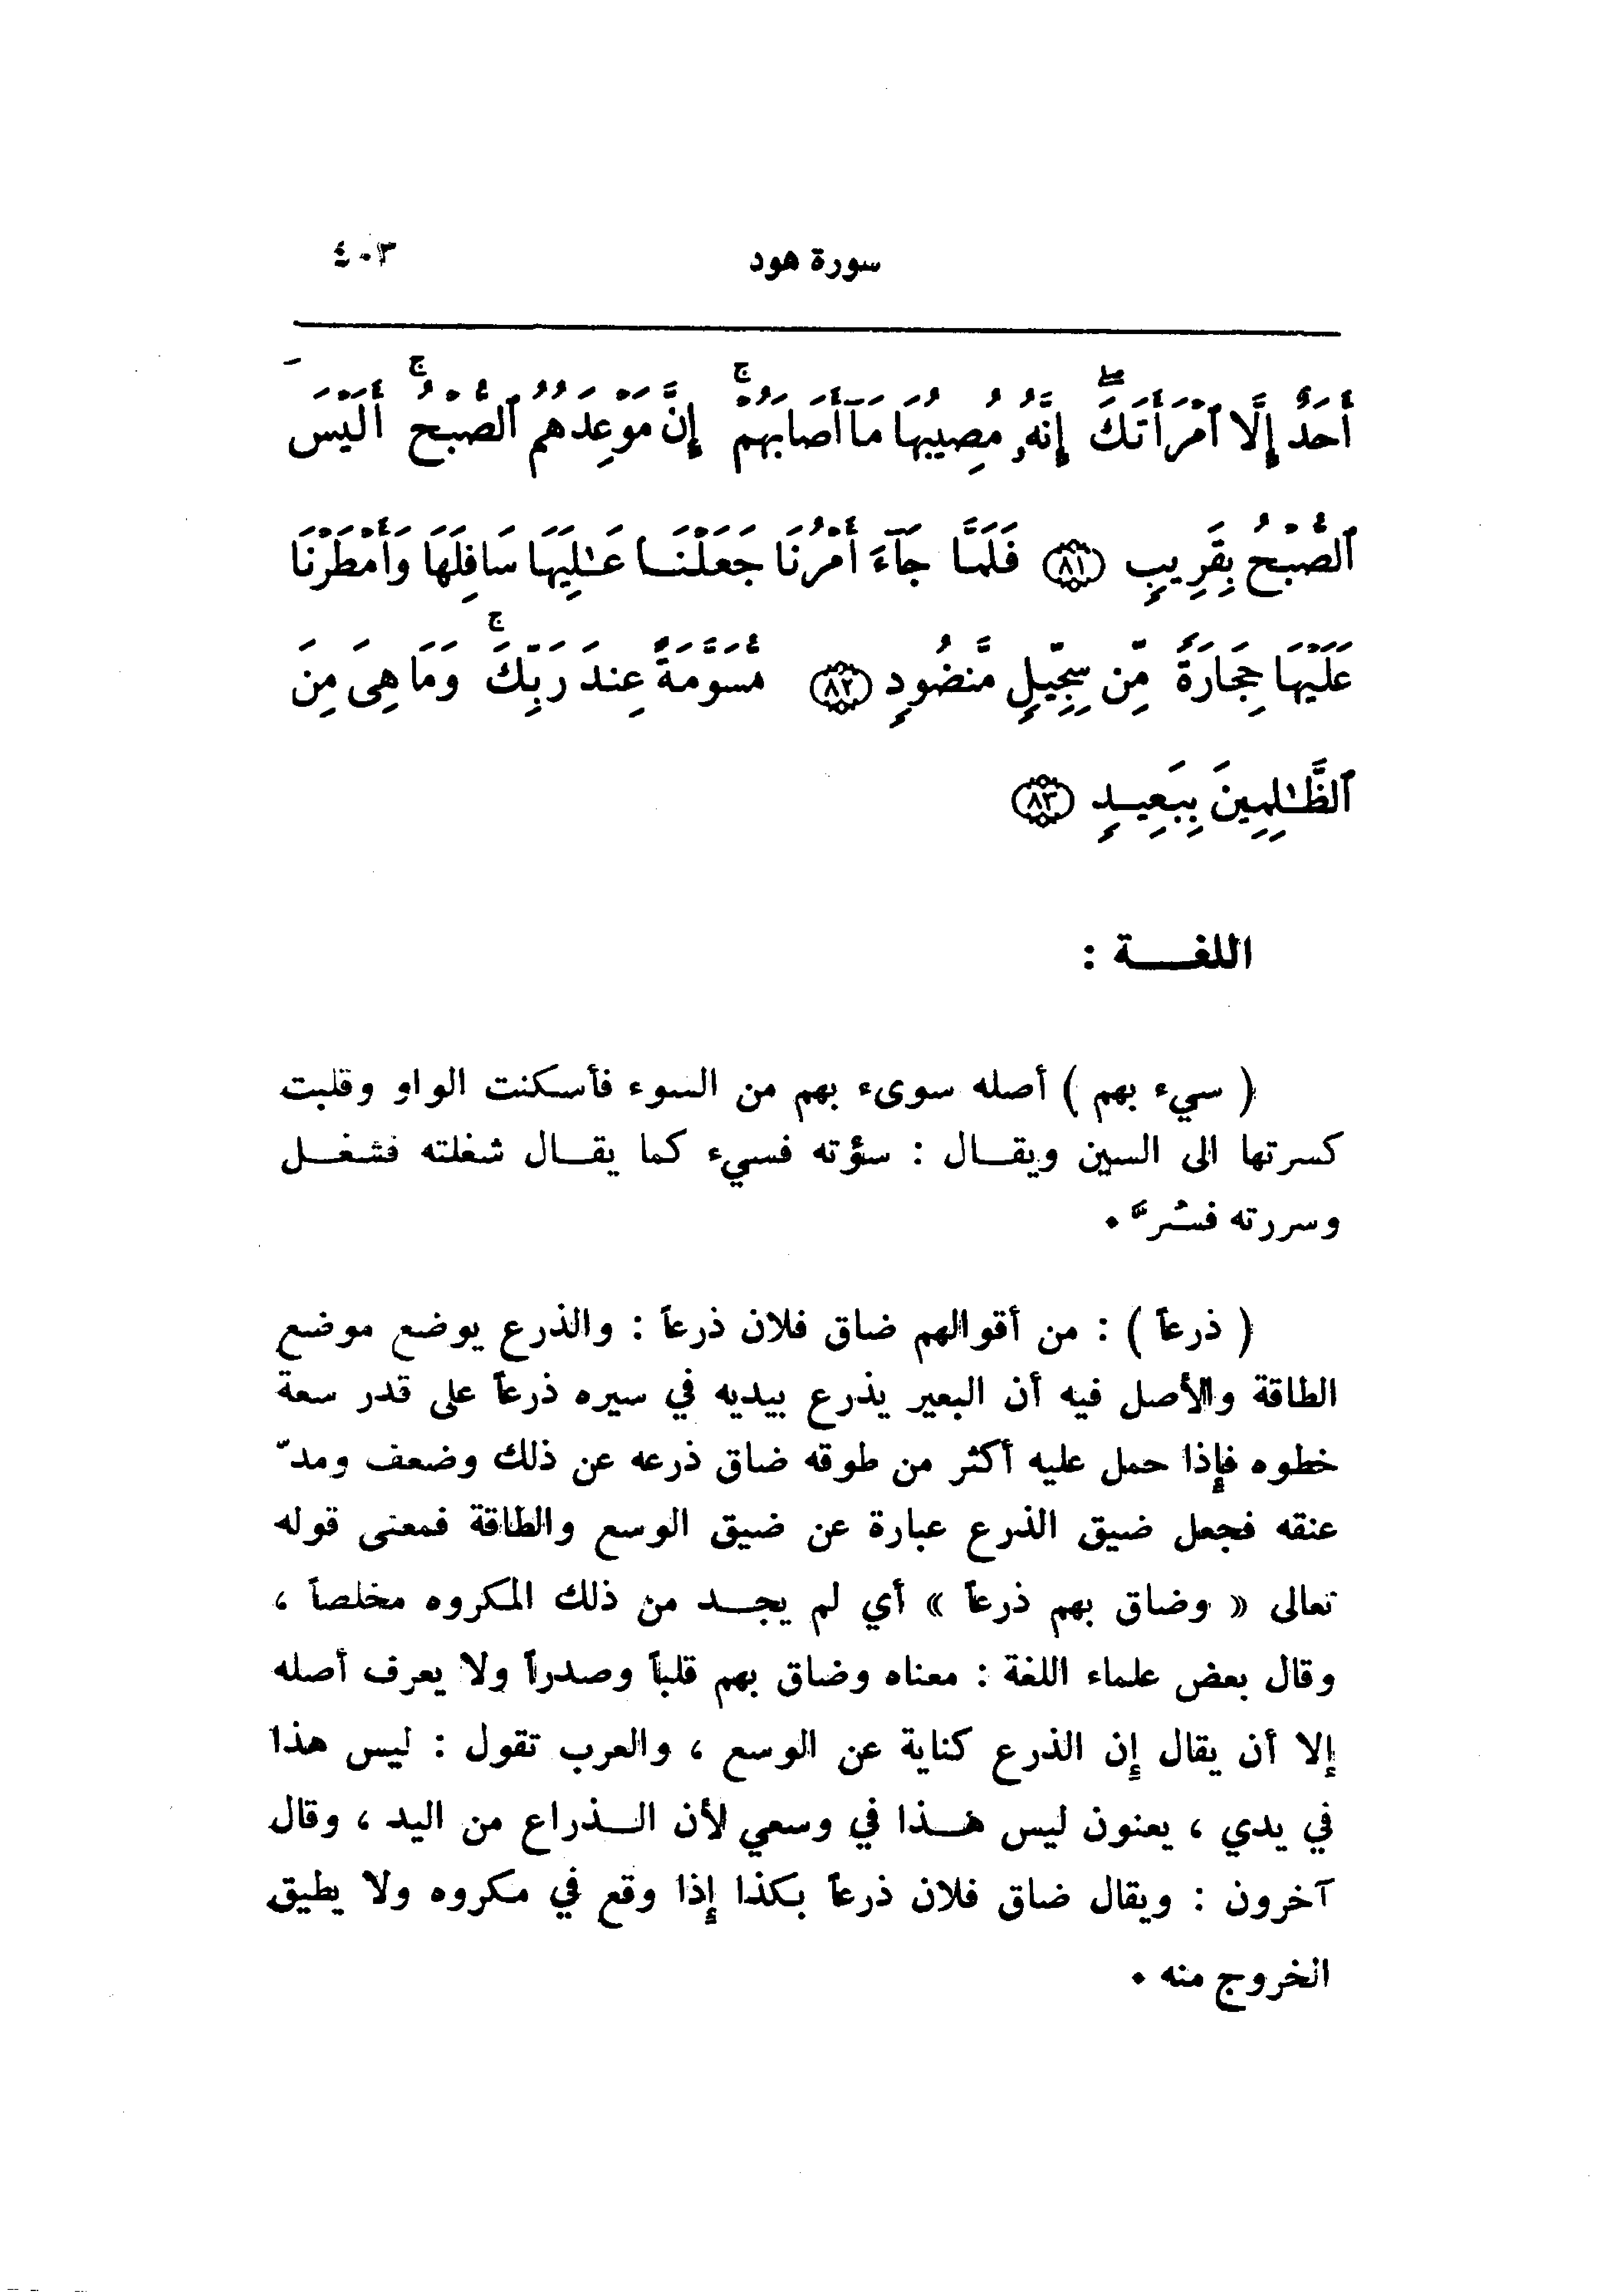 سورة هود ٤٠٣
أَحَدٌ إِلَّا ٱمْرَأَتَكَ ۖ إِنَّهُۥ مُصِيبُهَا مَآ أَصَابَهُمْ ۚ إِنَّ مَوْعِدَهُمُ ٱلصُّبْحُ ۚ أَلَيْسَ
ٱلصُّبْحُ بِقَرِيبٍ ﴿٨١﴾ فَلَمَّا جَآءَ أَمْرُنَا جَعَلْنَا عَـٰلِيَهَا سَافِلَهَا وَأَمْطَرْنَا
عَلَيْهَا حِجَارَةً مِّن سِجِّيلٍ مَّنضُودٍ ﴿٨٢﴾ مُّسَوَّمَةً عِندَ رَبِّكَ ۚ وَمَا هِىَ مِنَ
ٱلظَّـٰلِمِينَ بِبَعِيدٍ ﴿٨٣﴾
اللغـــة :
( سيء بهم ) أصله سوىء بهم من السوء فأسكنت الواو وقلبت
كسرتها الى السين ويقـال : سؤته فسيء كما يقـال شغلته فشغـل
وسررته فسُرَّ .
( ذرعاً ) : من أقوالهم ضاق فلان ذرعاً : والذرع يوضع موضع
الطاقة والأصل فيه أن البعير يذرع بيديه في سيره ذرعاً على قدر سعة
خطوه فإذا حمل عليه أكثر من طوقه ضاق ذرعه عن ذلك وضعف ومدّ
عنقه فجعل ضيق الذرع عبارة عن ضيق الوسع والطاقة فمعنى قوله
تعالى « وضاق بهم ذرعاً » أي لم يجـد من ذلك المكروه مخلصاً ،
وقال بعض علماء اللغة : معناه وضاق بهم قلباً وصدراً ولا يعرف أصله
إلا أن يقال إن الذرع كناية عن الوسع ، والعرب تقول : ليس هذا
في يدي ، يعنون ليس هـذا في وسعي لأن الـذراع من اليد ، وقال
آخرون : ويقال ضاق فلان ذرعاً بكذا إذا وقع في مكروه ولا يطيق
الخروج منه .